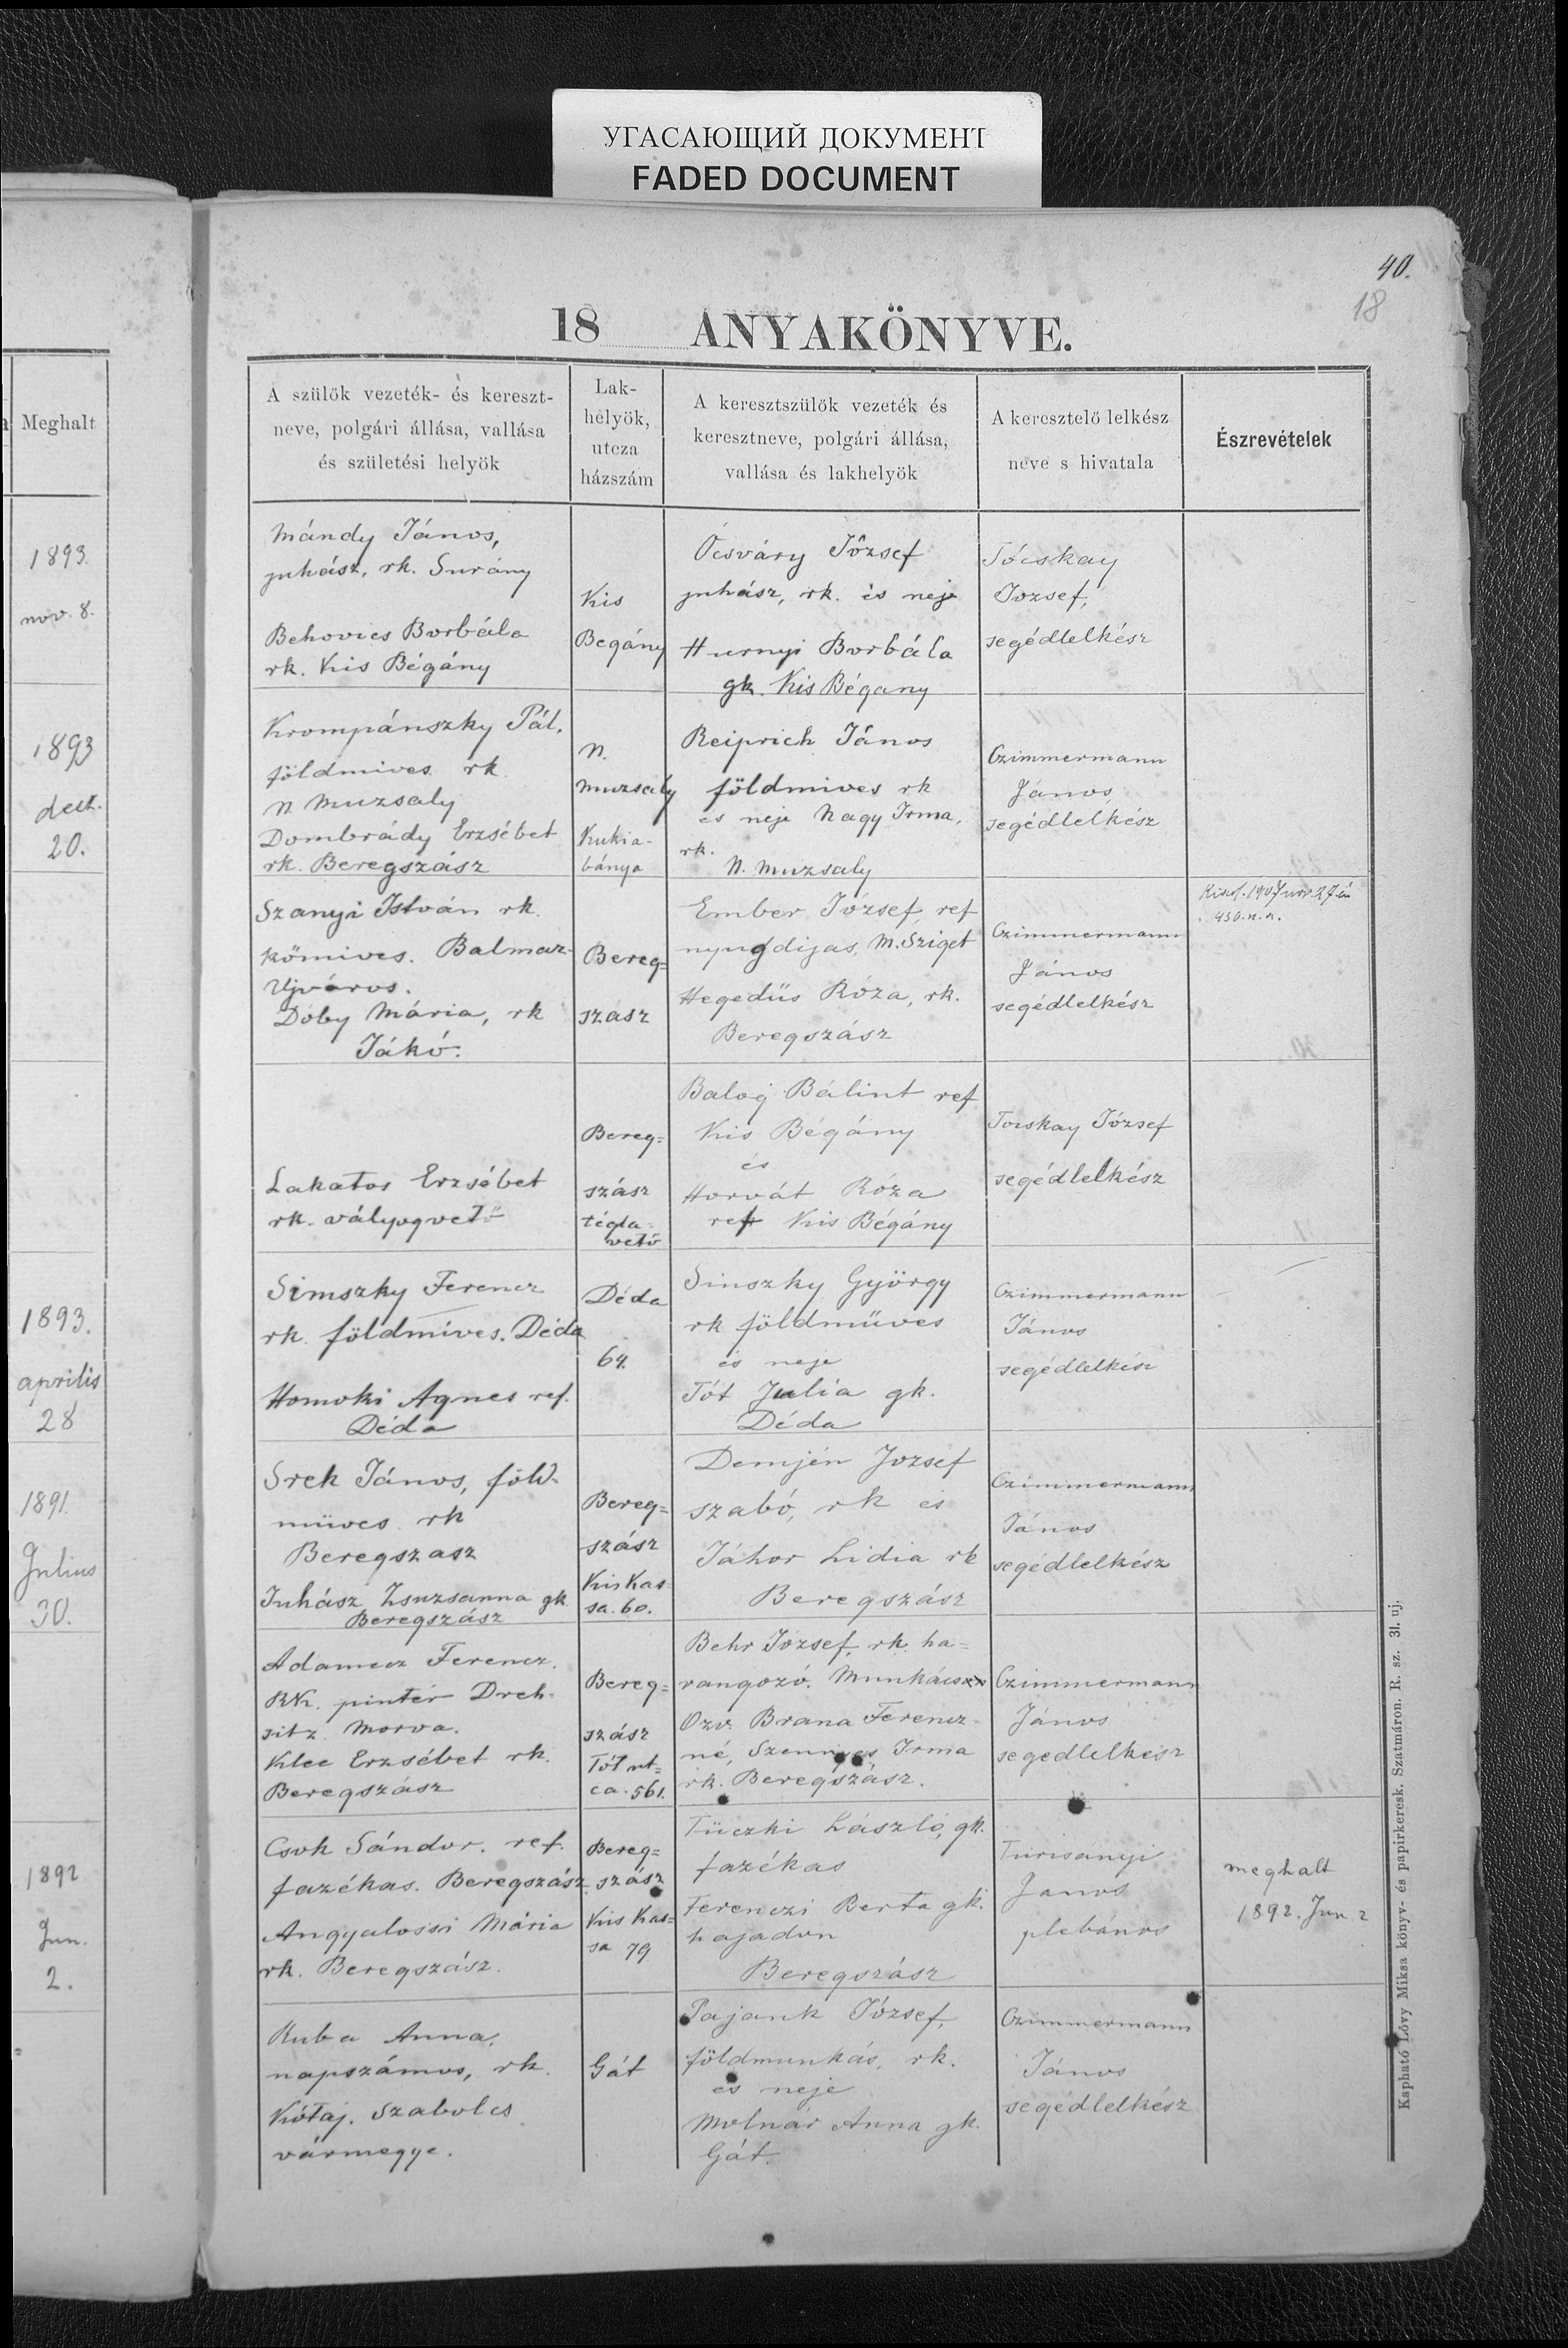 УГАСАЮЩИЙ ДОКУМЕНТ
FADED DOCUMENT
40.
18
18 ANYAKÖNYVE.
Meghalt
A szülök vezeték- és kereszt-
neve, polgári állása, vallása
és születési helyök
Lak-
helyök,
utcza
házszám
A keresztszülök vezeték és
keresztneve, polgári állása,
vallása és lakhelyök
A keresztelö lelkész
neve s hivatala
Észrevételek
1893.
nov. 8.
Mándy János,
juhász, rk. Surány
Behovics Borbála
rk. Kis Bégány
Kis
Begány
Ócsváry József
juhász, rk. és neje
Hurnyi Borbála
gk. Kis Bégany
Tócskay
Jozsef,
segédlelkész
1893
decz.
20.
Krompánszky Pál.
földmives rk
N Muzsaly
Dombrády Erzsébet
rk. Beregszász
N.
muzsaly
Kukia-
bánya
Reiprich János
földmives rk
és neje Nagy Irma,
rk.
N. Muzsaly
Czimmermann
János
segédlelkész
Szanyi István rk.
kömives. Balmaz-
Ujváros.
Doby Mária, rk
Jákó.
Bereg=
szász
Ember József, ref
nyugdijas, M. Sziget
Hegedüs Róza, rk.
Beregszász
Czimmermann
János
segédlelkész
1907 nov. 27-én
Lakatos Erzsébet
rk. vályogvető
Bereg=
szász
tégla=
vető
Balog Bálint ref
Kis Bégány
és
Horvát Róza
ref Kis Bégány
Tocskay József
segédlelkész
1893.
aprilis
28
Simszky Ferencz
rk. földmives. Déda
Homoki Agnes ref.
Déda
Déda
64.
Sinszky György
rk földmüves
és neje
Tót Julia gk.
Déda
Czimmermann
János
segédlelkész
1891.
Julius
30.
Srek János, föld-
müves rk
Beregszasz
Juhász Zsuzsanna gk
Beregszász
Bereg=
szász
Kis Kas-
sa. 60.
Demjén Jozsef
szabó, rk és
Jákor Lidia rk
Beregszász
Czimmermann
János
segédlelkész
Adamecz Ferencz.
RK. pintér Dreh-
sitz Morva.
Klee Erzsébet rk.
Beregszász
Bereg=
szász
Tót ut=
ca. 561.
Behr József, rk. ha=
rangozó. Munkács
Özv. Brana Ferencz-
né, Szennyes Irma
rk. Beregszász.
Czimmermann
János
segédlelkész
1892
Jun.
2.
Csok Sándor. ref.
fazékas. Beregszász
Angyalossi Mária
rk. Beregszász.
Bereg=
szász
Kis Kas=
sa 79
Tüczki László, gk.
fazékas
Ferenczi Berta gk.
hajadon
Beregszász
Turcsanyi
Janos
plebános
meghalt
1892. Jun. 2
Kuba Anna,
napszámos, rk.
Kótaj. Szabolcs
vármegye.
Gát
Pajank József,
földmunkás, rk.
és neje
Molnár Anna gk.
Gát.
Czimmermann
János
segédlelkész
Kapható Lövy Miksa könyv- és papirkeresk. Szatmáron. R. sz. 31. uj.